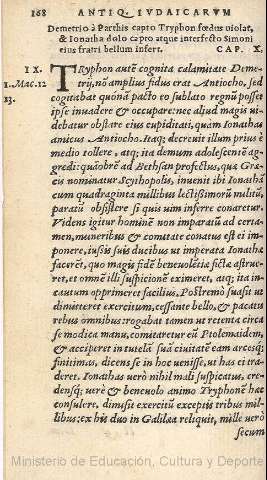 168 ANTIQ. IVDAICARVM
Demetrio à Parthis capto Tryphon fœdus uiolat,
& Ionatha dolo capto atque interfecto Simoni
eius fratri bellum infert. CAP. X.
IX. TRyphon autē cognita calamitate Deme-
1. Mac. 12 trij, nō amplius fidus erat Antiocho, sed
13. cogitabat quonā pacto eo sublato regnū posset
ipse inuadere & occupare: nec aliud magis ui-
debatur obstare eius cupiditati, quàm Ionathas
amicus Antiocho. Itaq; decreuit illum prius è
medio tollere, atq; ita demum adolescentē ag-
gredi: quóbrē ad Bethsan profectus, quæ Græ-
cis nominatur Scythopolis, inuenit ibi Ionathā
cum quadraginta millibus lectissimorū militū,
paratū obsistere si quis uim inferre conaretur.
Videns igitur hominē non imparatū ad certa-
men, muneribus & comitate conatus est ei im-
ponere, iussis suis ducibus ut imperata Ionathæ
facerēt, quo magis fidē beneuolētiæ fictæ astrue-
ret, et omnē illi suspicionē eximeret, atq; ita in-
cautum opprimeret facilius. Postremò suasit ut
dimitteret exercitum, cessante bello, & pacatis
rebus omnibus: rogabat tamen ut retenta circa
se modica manu, comitaretur eū Ptolemaidem,
& acciperet in tutelā suā ciuitatē cum arcesq;
finitimas, dicens se in hoc uenisse, ut has ei tra-
deret. Ionathas uerò nihil mali suspicatus, cre-
densq; uerè & beneuolo animo Tryphonē hæc
consulere, dimisit exercitū exceptis tribus mil-
libus: ex his duo in Galilæa reliquit, mille uerò
secum
Ministerio de Educación, Cultura y Deporte